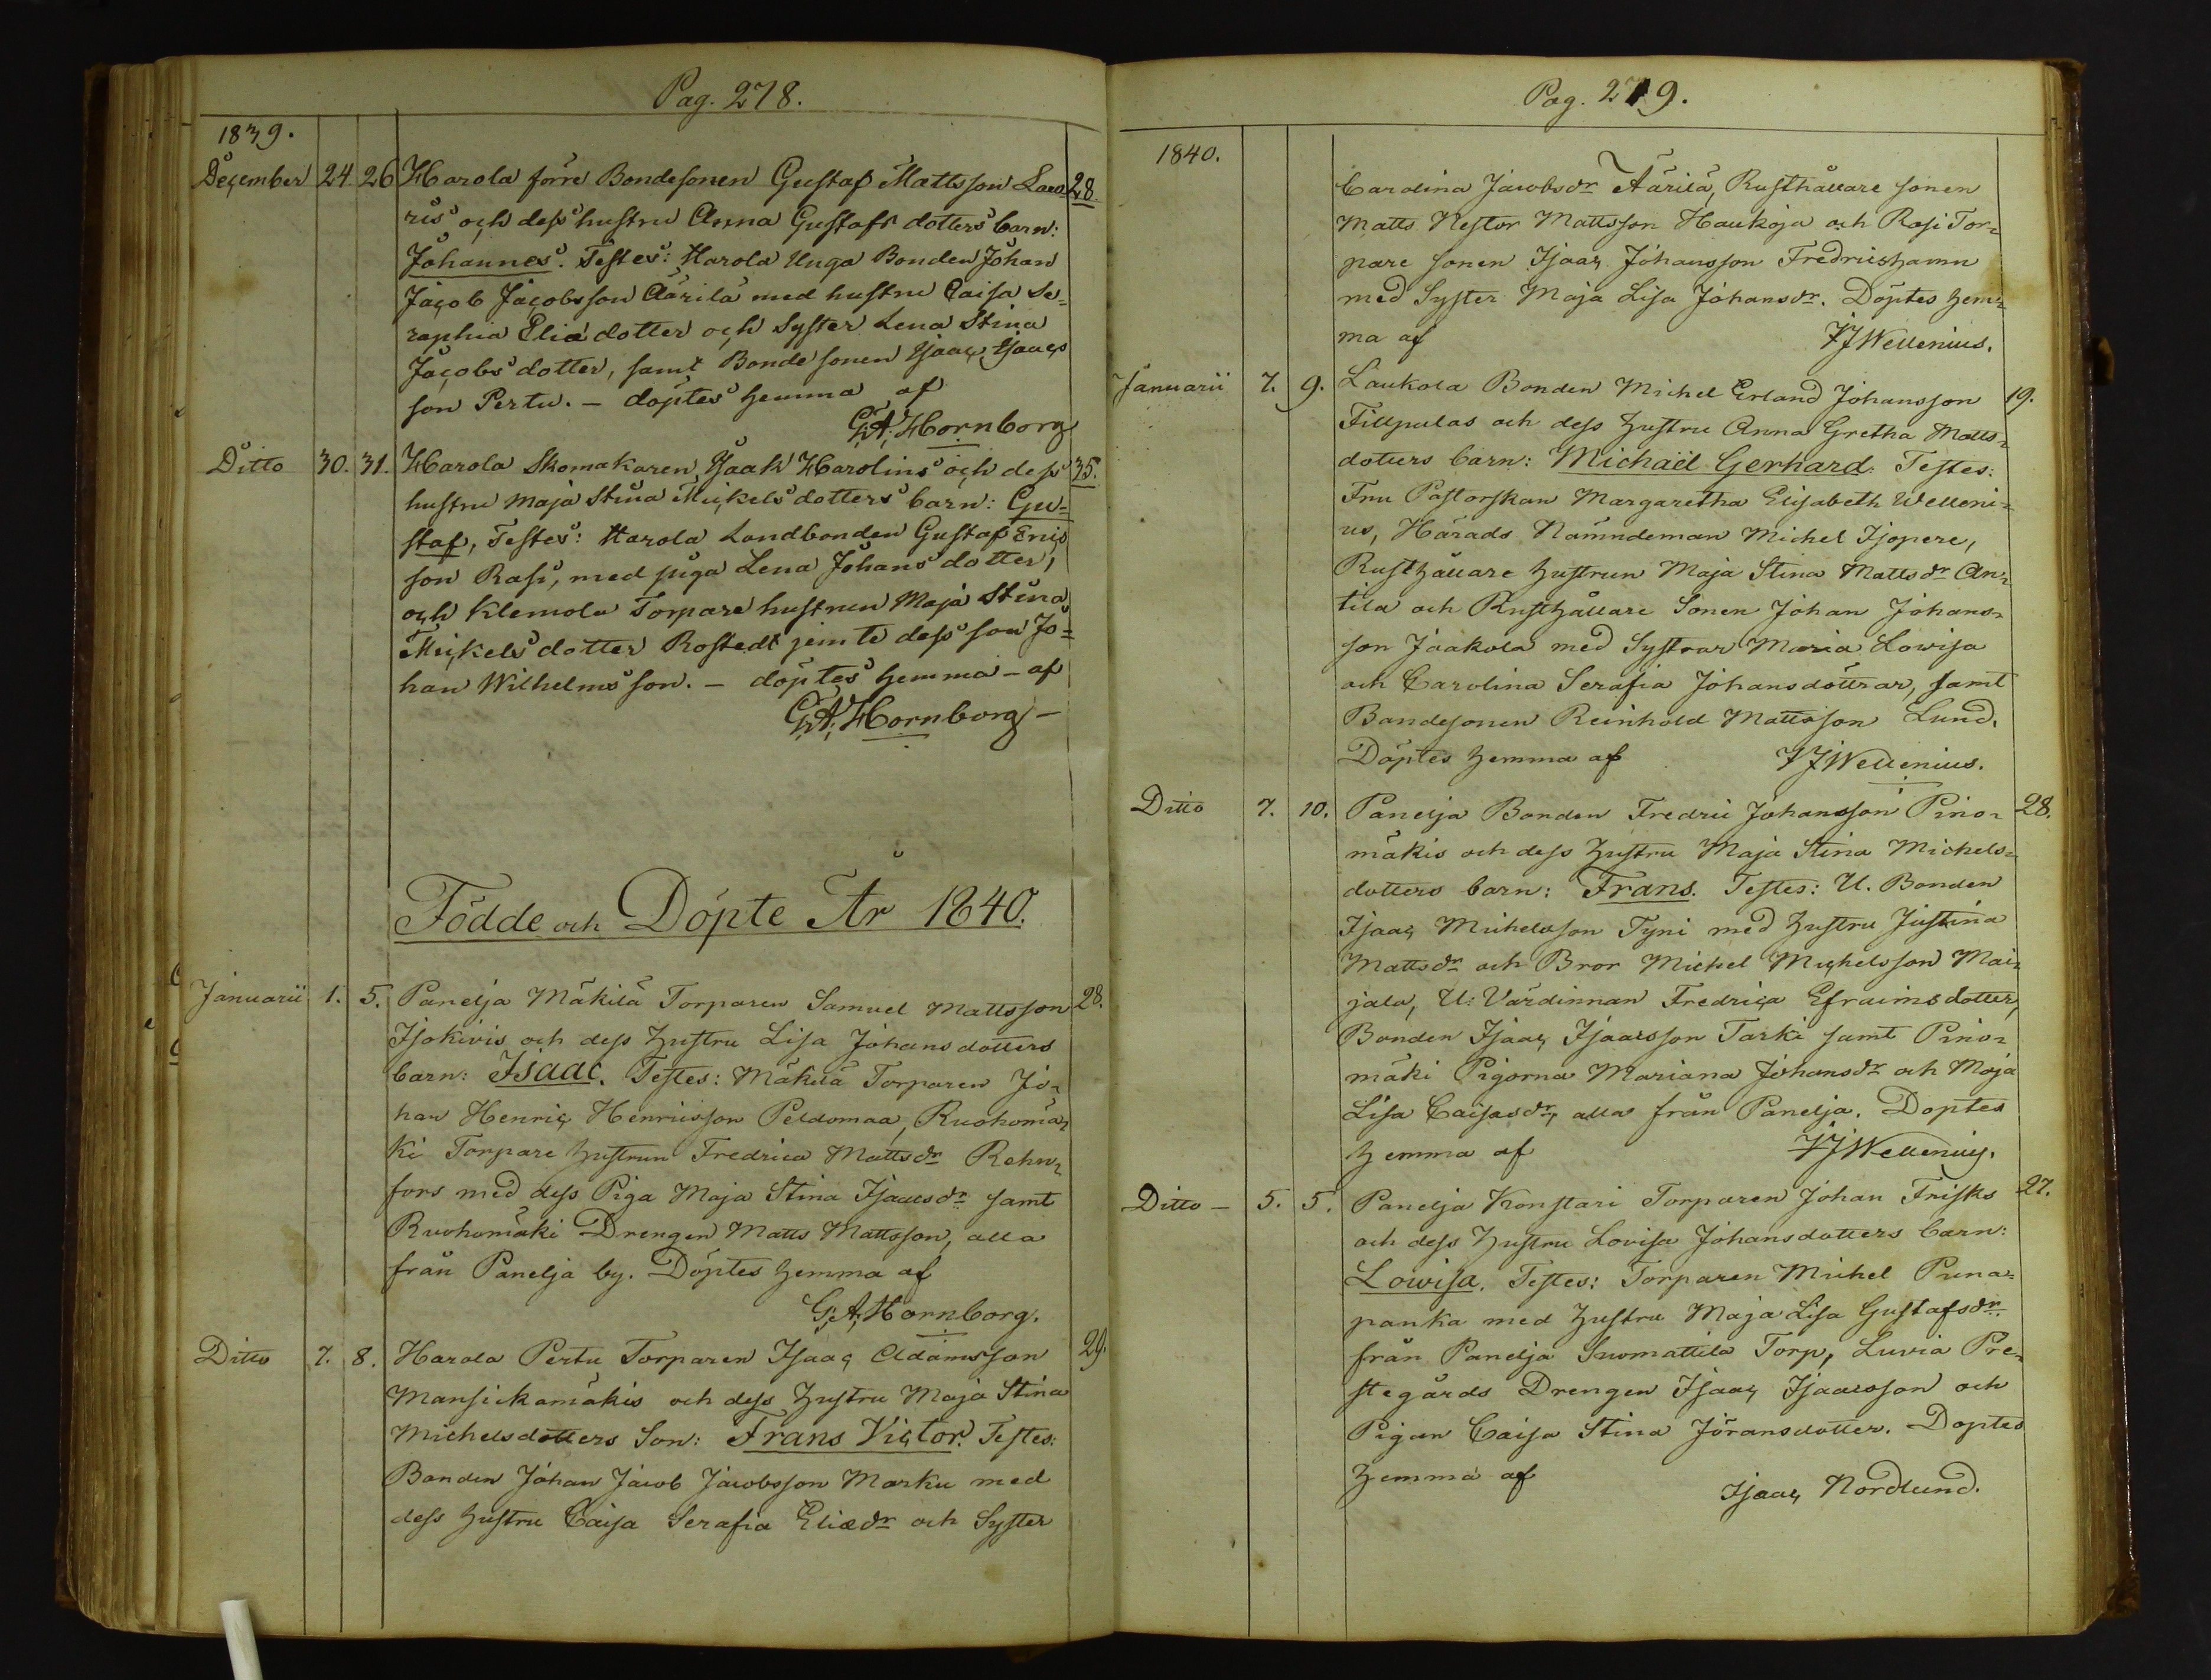 Pag. 278.
1839.
December 24. 26 Harola förre Bondesonen Gustaf Mattsson Lau= 28.
ris och dess hustru Anna Gustafs dotters barn:
Johannes. Testes: Harola Unga Bonden Johan
Jacob Jacobsson Äärilä med hustru Caisa Se=
raphia Eliædotter och Syster Lena Stina
Jacobs dotter, samt Bonde sonen Isaac Isaacs
son Pertu. – döptes hemma af
G.A. Hornborg
Ditto 30. 31. Harola Skomakaren Isaak Harolins och dess 35.
hustru Maja Stina Mickels dotters barn: Gu=
staf, Testes: Harola Landbonden Gustaf Erics
son Rasi, med piga Lena Johans dotter,
och Klemola Torpare hustrun Maja Stina
Mickels dotter Rostedt jemte dess son Jo=
han Wilhelms son. – döptes hemma – af
G.A. Hornborg –
Födde och Döpte År 1840.
Januarii 1. 5. Panelja Mäkilä Torparen Samuel Mattsson 28.
Isokivis och dess hustru Lisa Johansdotters
barn: Isaac. Testes: Mäkilä Torparen Jo=
han Henric Henricsson Peldomaa, Ruohomä=
ki Torpare hustrun Fredrica Mattsdr Rehn=
fors med dess Piga Maja Stina Isaacsdr samt
Ruohomäki Drengen Matts Mattsson, alla
från Panelja by. Döptes hemma af
G.A. Hornborg.
Ditto 7. 8. Harola Pertu Torparen Isaac Adamsson 29.
Mansikamäkis och dess hustru Maja Stina
Michelsdotters Son: Frans Victor. Testes:
Bonden Johan Jacob Jacobsson Marku med
dess hustru Caisa Serafia Eliædr och Syster
Pag. 279.
1840.
Carolina Jacobsdr Äärilä, Rusthållare sonen
Matts Nestor Mattsson Haukoja och Rasi Tor=
pare sonen Isaac Johansson Fredricshamn
med Syster Maja Lisa Johansdr. Döptes hem=
ma af
FJWellenius.
Januarii 7. 9. Laukola Bonden Michel Erland Johansson 19.
Fillpulas och dess hustru Anna Gretha Matts=
dotters barn: Michaël Gerhard. Testes:
Fru Pastorskan Margaretha Elisabeth Welleni=
us, Härads Nämndeman Michel Isopere,
Rusthållare hustrun Maja Stina Mattsdr An=
tila och Rusthållare Sonen Johan Johans=
son Jaakola med Systrar Maria Lowisa
och Carolina Serafia Johansdöttrar, samt
Bondesonen Reinhold Mattsson Lund.
Döptes hemma af FJWellenius.
Ditto 7. 10. Panelja Bonden Fredric Johansson Pino= 28.
mäkis och dess hustru Maja Stina Michels=
dotters barn: Frans. Testes: U. Bonden
Isaac Michelsson Tyni med hustru Justina
Mattsdr och Bror Michel Michelsson Mai=
jala, U: Värdinnan Fredrica Efraimsdotter,
Bonden Isaac Isaacsson Tarki samt Pino=
mäki Pigorna Mariana Johansdr och Maja
Lisa Caisasdr, alla från Panelja. Döptes
hemma af FJWellenius.
Ditto – 5. 5. Panelja Konstari Torparen Johan Frisks 27.
och dess hustru Lovisa Johansdotters barn:
Lowisa. Testes: Torparen Michel Puna=
panka med hustru Maja Lisa Gustafsdr
från Panelja Suomattila Torp, Luvia Pre=
stegårds Drengen Isaac Isaacsson och
Pigan Caisa Stina Jöransdotter. Döptes
hemma af
Isaac Nordlund.